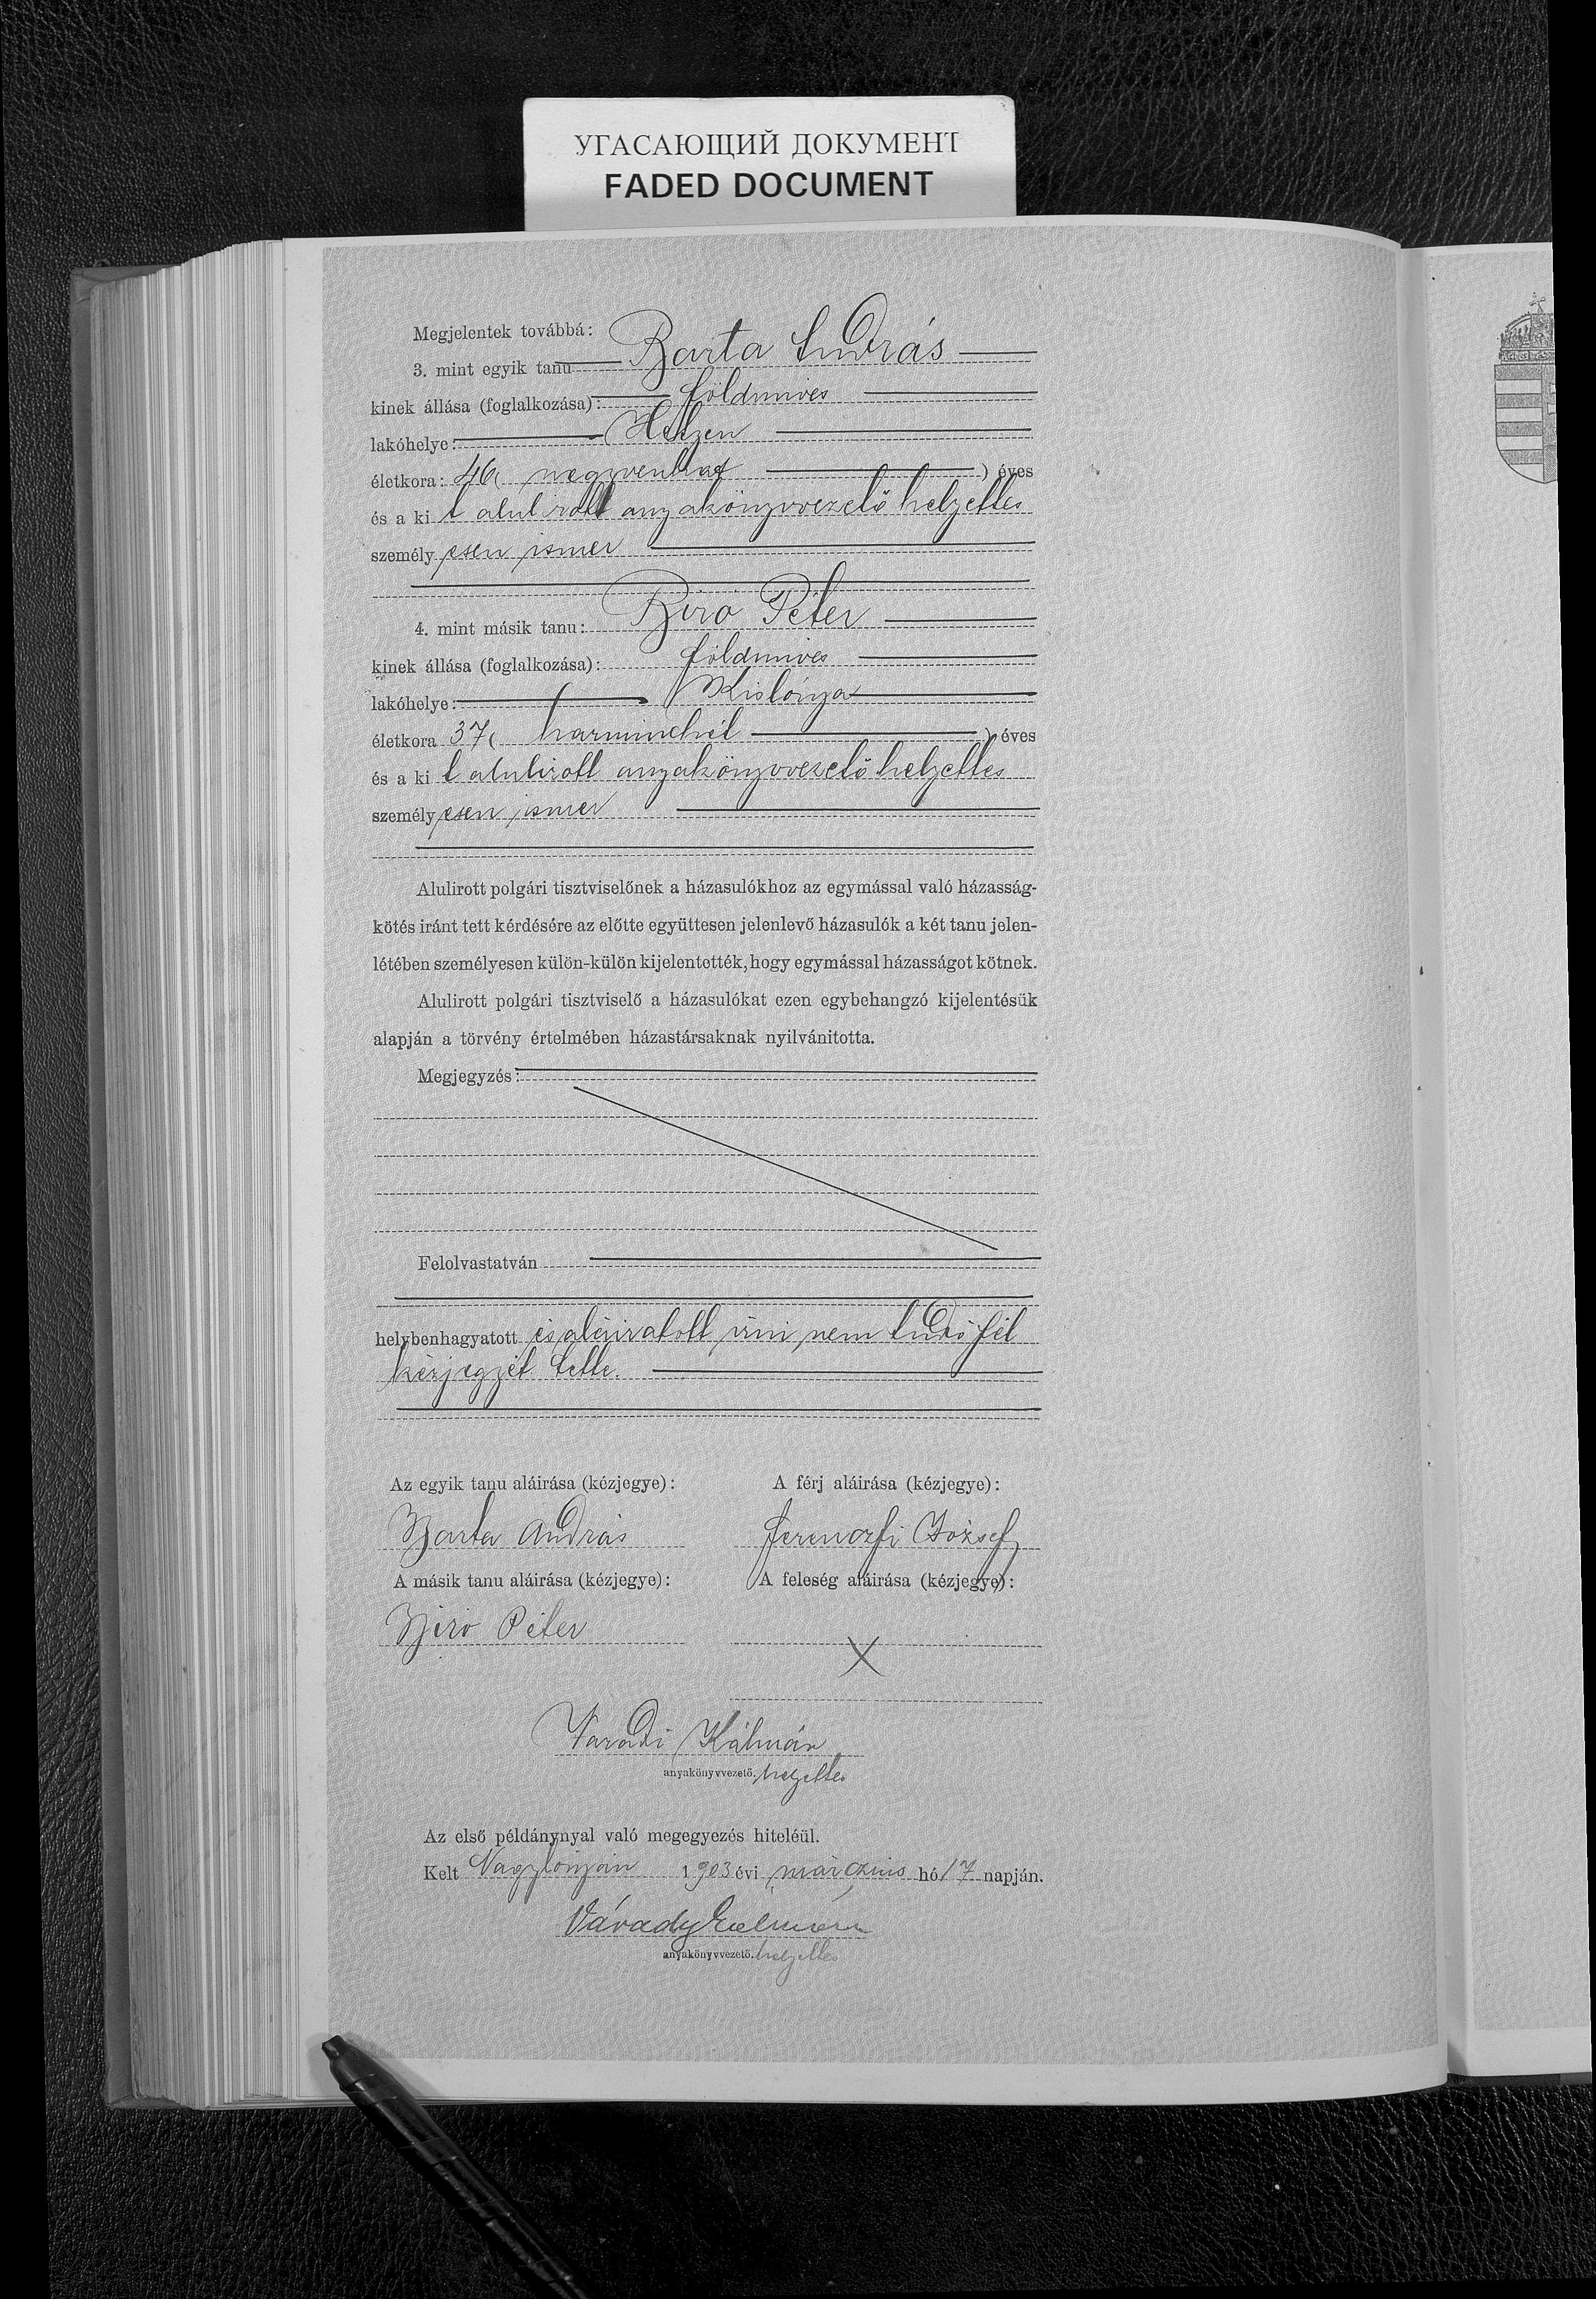 УГАСАЮЩИЙ ДОКУМЕНТ
FADED DOCUMENT
Megjelentek továbbá:
3. mint egyik tanu Barta András
kinek állása (foglalkozása): földmives
lakóhelye: Hetyen
életkora: 46 ( negyvenhat ) éves
és a ki t alulirott anyakönyvvezető helyettes
személyesen ismer
4. mint másik tanu: Biró Péter
kinek állása (foglalkozása): földmives
lakóhelye: Kislónya
életkora 37 ( harminchét ) éves
és a ki t alulirott anyakönyvvezető helyettes
személyesen ismer
Alulirott polgári tisztviselőnek a házasulókhoz az egymással való házasság-
kötés iránt tett kérdésére az előtte együttesen jelenlevő házasulók a két tanu jelen-
létében személyesen külön-külön kijelentették, hogy egymással házasságot kötnek.
Alulirott polgári tisztviselő a házasulókat ezen egybehangzó kijelentésük
alapján a törvény értelmében házastársaknak nyilvánitotta.
Megjegyzés:
Felolvastatván
helybenhagyatott és aláiratott, irni nem tudó fél
kézjegyét tette.
Az egyik tanu aláirása (kézjegye): A férj aláirása (kézjegye):
Barta András Ferenczfi József
A másik tanu aláirása (kézjegye): A feleség aláirása (kézjegye):
Biró Péter X
Váradi Kálmán
anyakönyvvezető. helyettes
Az első példánynyal való megegyezés hiteléül.
Kelt Nagylónyán 1903 évi márczius hó 17 napján.
Várady Kálmán
anyakönyvvezető. helyettes